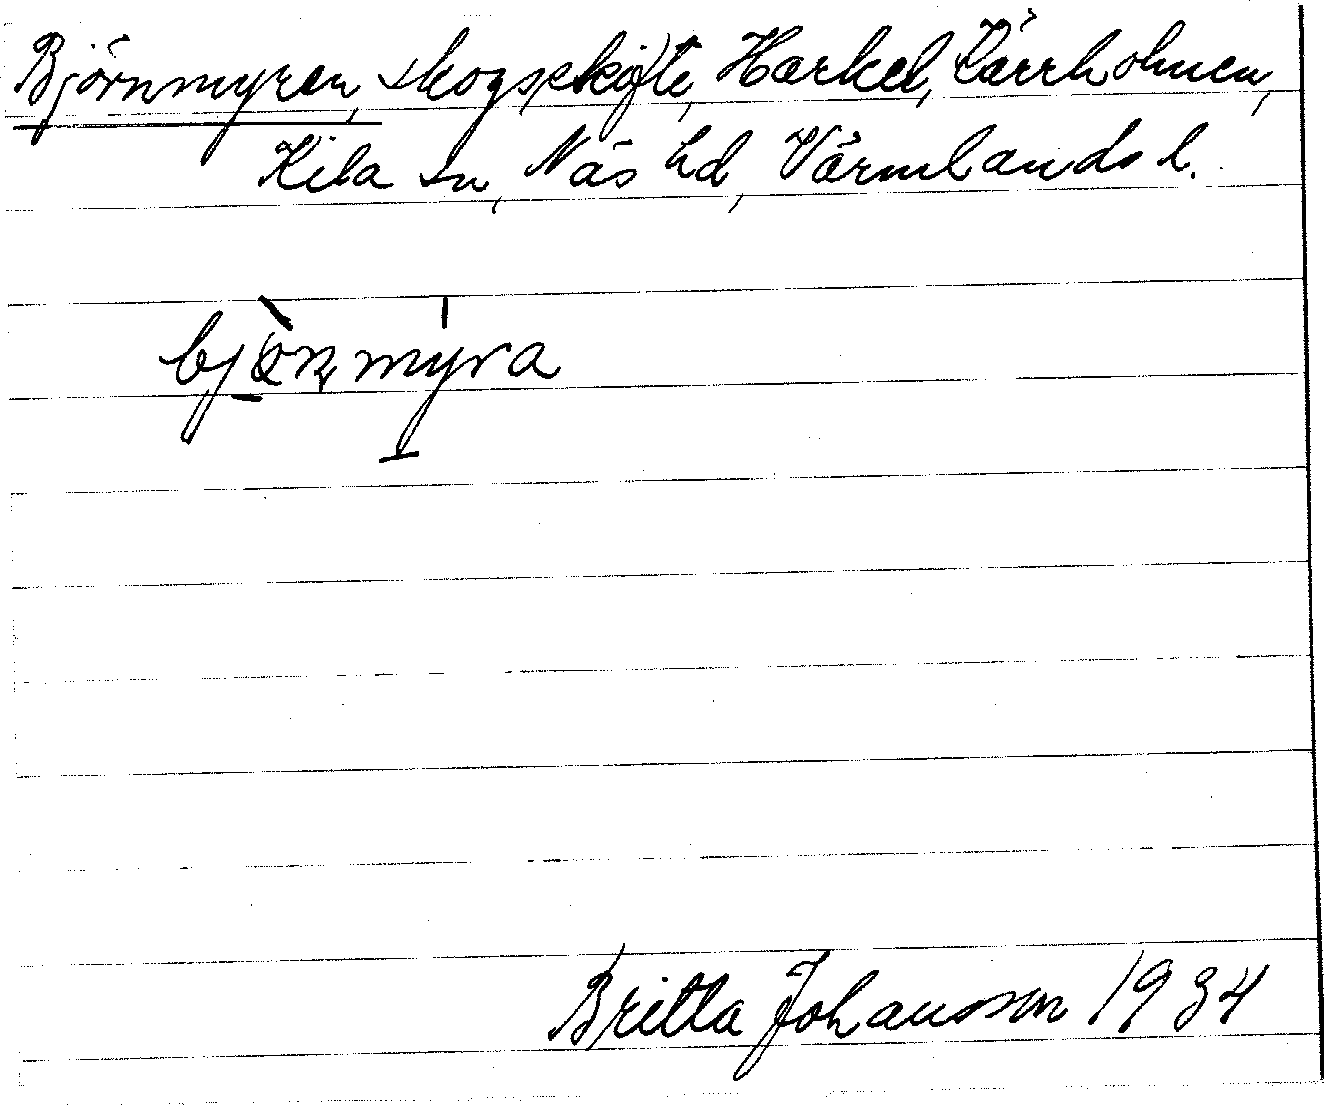 Björnmyren, skogsskifte, Harkel, Kärrholmen,
Kila sn, Näs hd, Värmlands l.
bjönmyra
Britta Johansson 1934